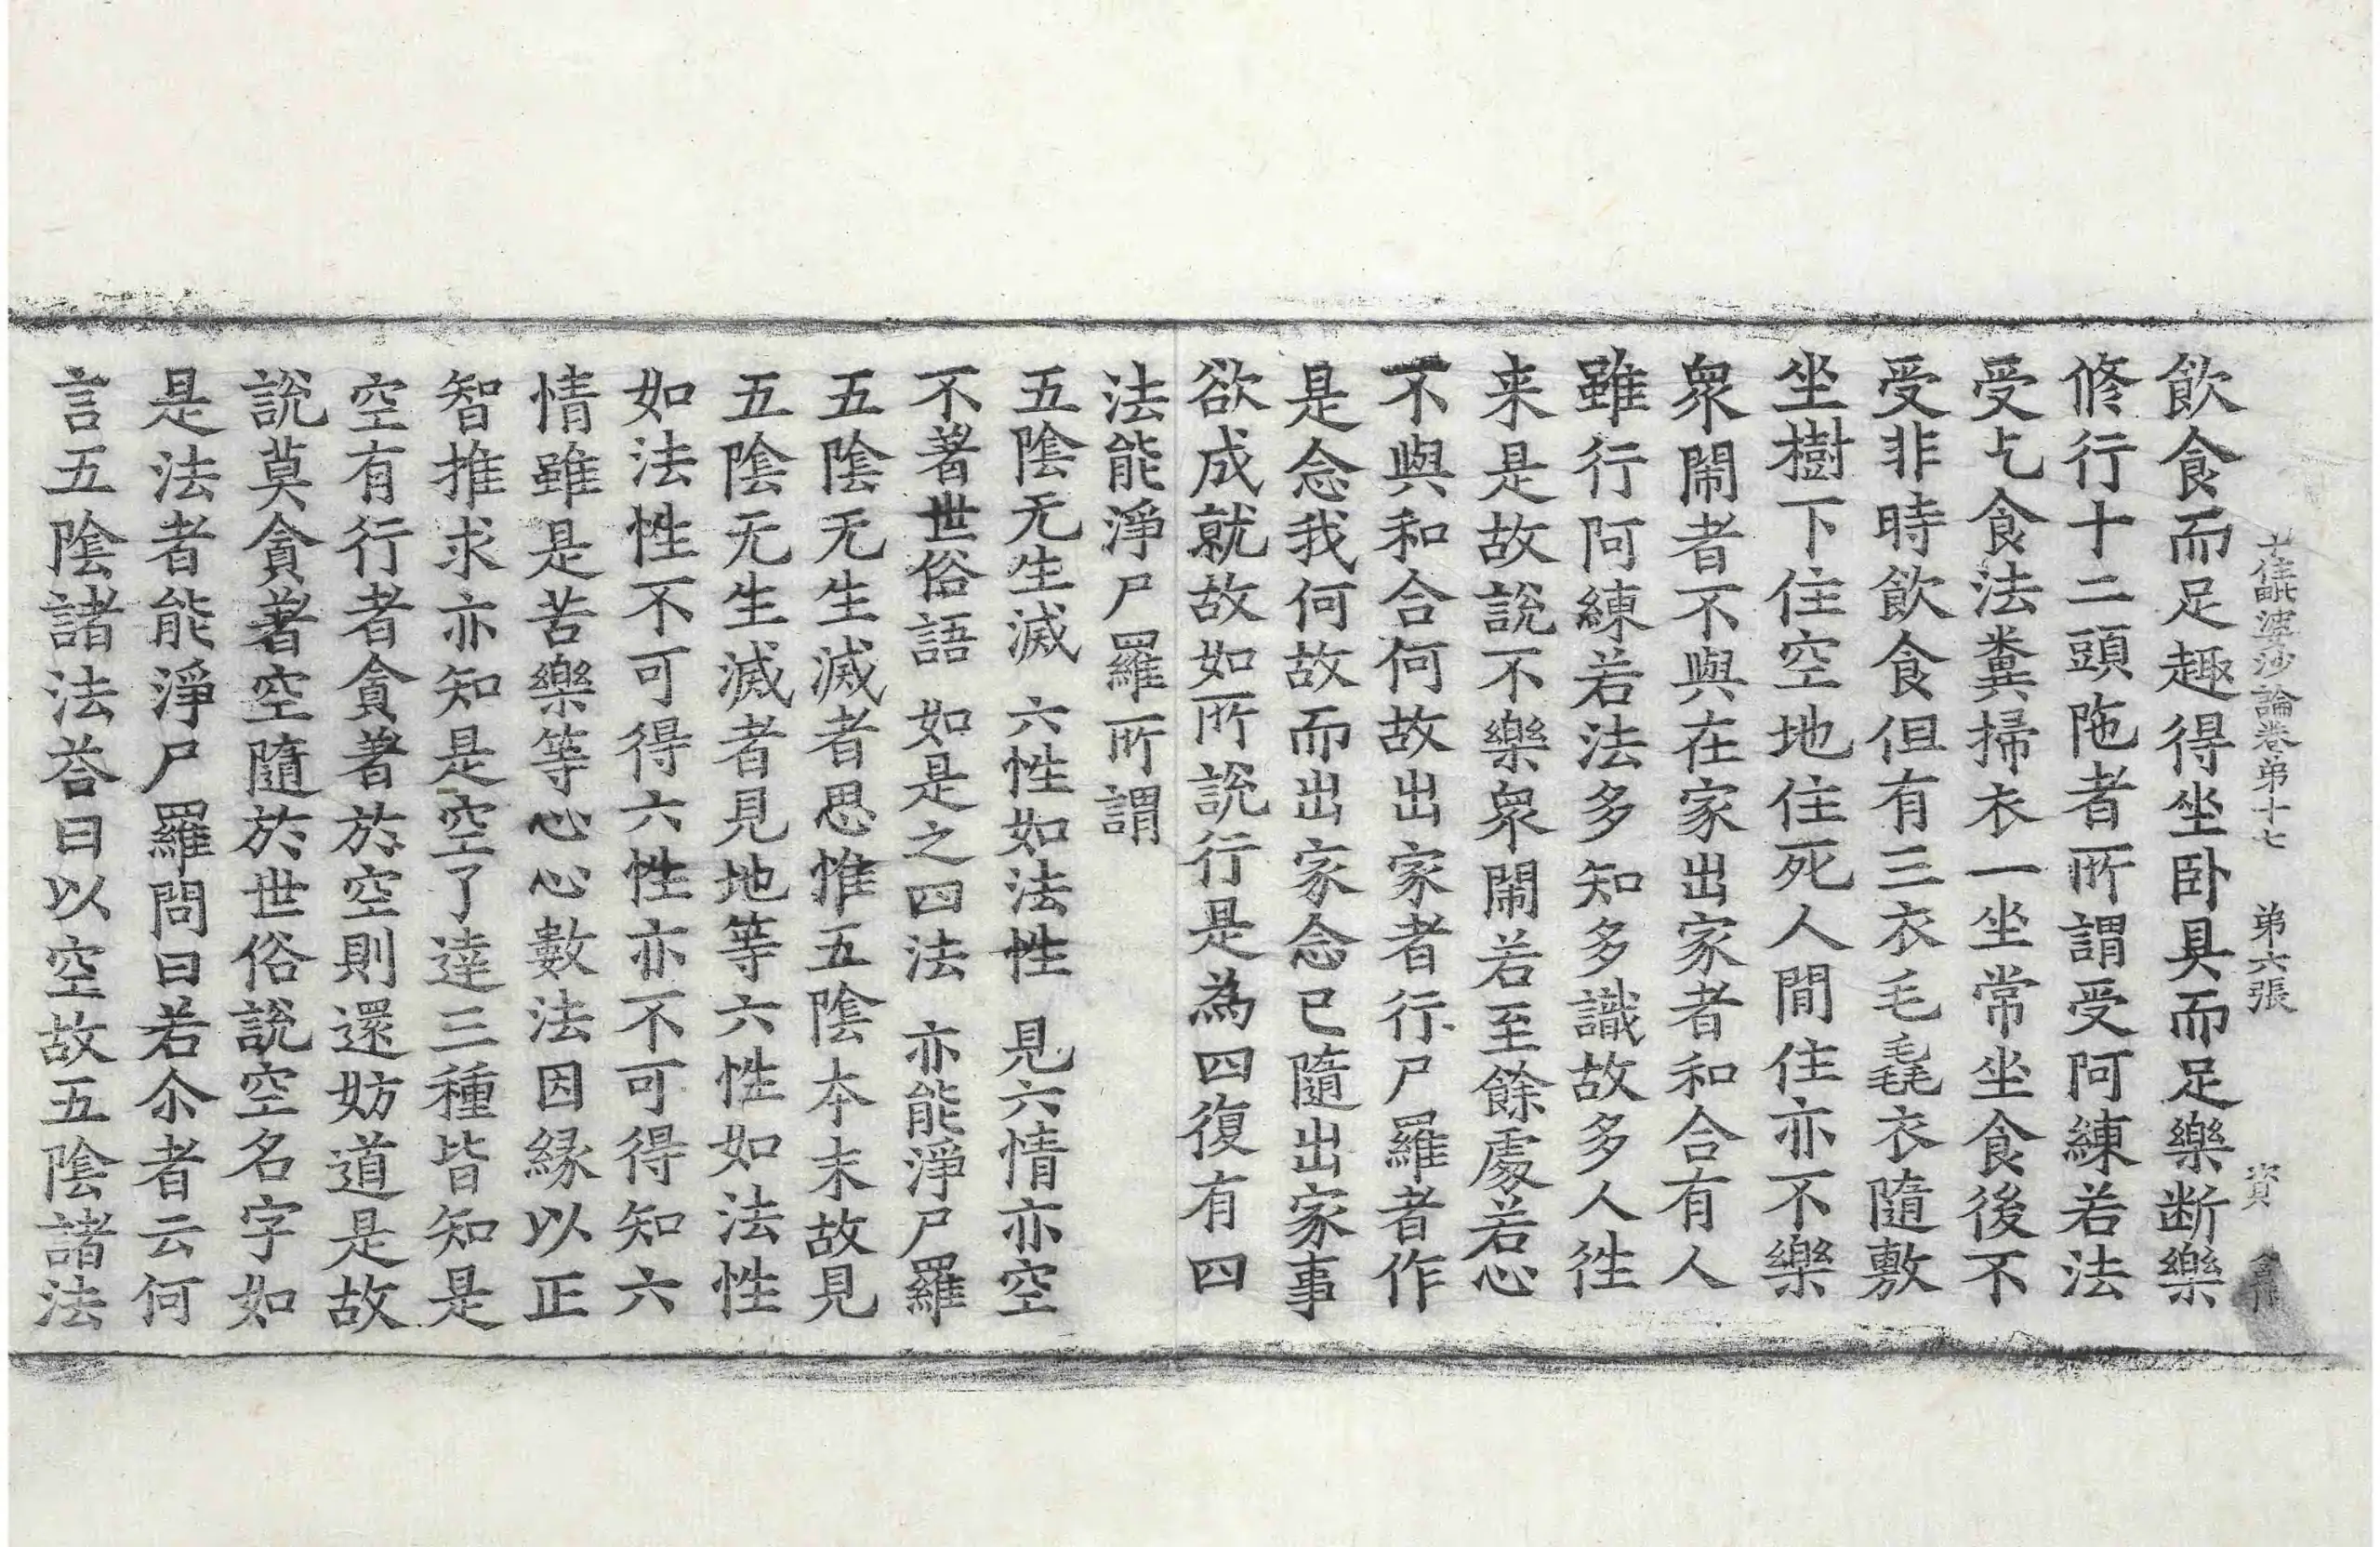 十住毗婆沙論卷第十七 第六張 資
飲食而足趣得坐卧具而足樂断樂
修行十二頭陁者所謂受阿練若法
受乞食法糞掃衣一坐常坐食後不
受非時飲食但有三衣毛毳衣隨敷
坐樹下住空地住死人間住亦不樂
衆閙者不與在家出家者和合有人
雖行阿練若法多知多識故多人往
来是故說不樂衆閙若至餘處若心
不與和合何故出家者行尸羅者作
是念我何故而出家念已隨出家事
欲成就故如所說行是為四復有四
法能淨尸羅所謂
五陰无生滅 六性如法性 見六情亦空
不著世俗語 如是之四法 亦能淨尸羅
五陰无生滅者思惟五陰本末故見
五陰无生滅者見地等六性如法性
如法性不可得六性亦不可得知六
情雖是苦樂等心心數法因緣以正
智推求亦知是空了達三種皆知是
空有行者貪著於空則還妨道是故
說莫貪著空隨於世俗說空名字如
是法者能淨尸羅問曰若尒者云何
言五陰諸法荅曰以空故五陰諸法